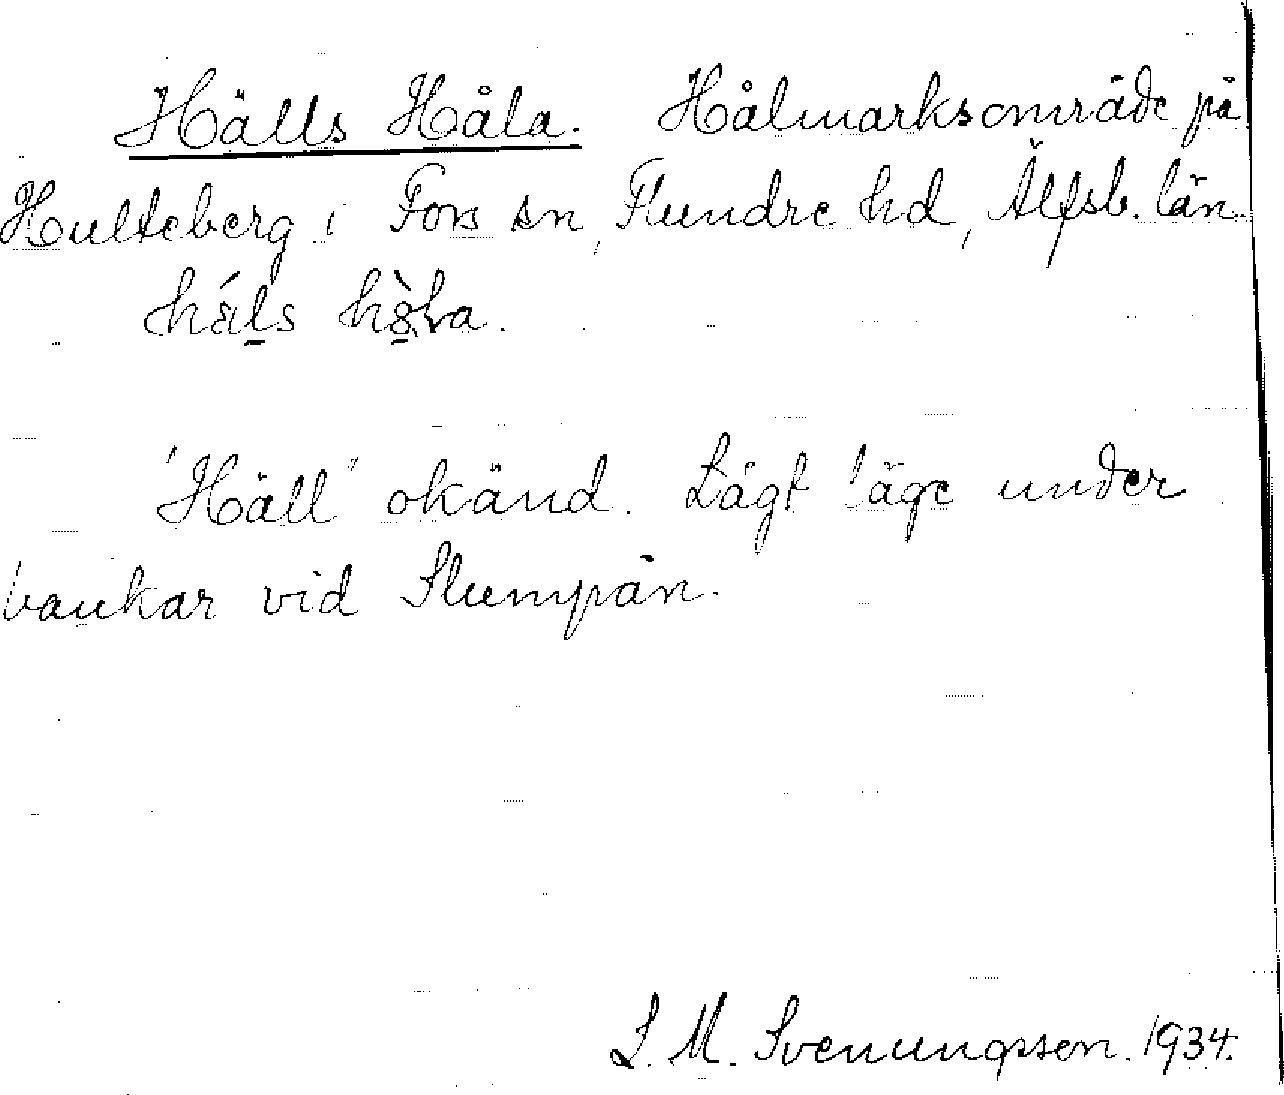 Hälls Håla. Hålmarksområde på
Hulteberg i Fors sn, Flundre hd, Älfsb. län.
háls hòla.
"Häll" okänd. Lågt läge under
bankar vid Slumpån.
S. M. Svenungsson. 1934.